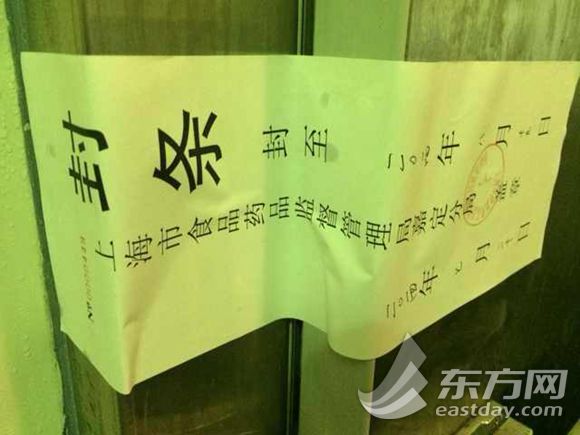 封条
封至 二〇一四年八月十九日
上海市食品药品监督管理局嘉定分局 盖章
二〇一四年七月二十日
东方网
eastday.com